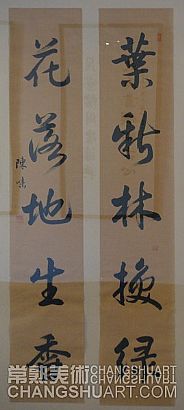 葉新林換綠
花落地生香
陳
常熟美術
CHANGSHUART.COM